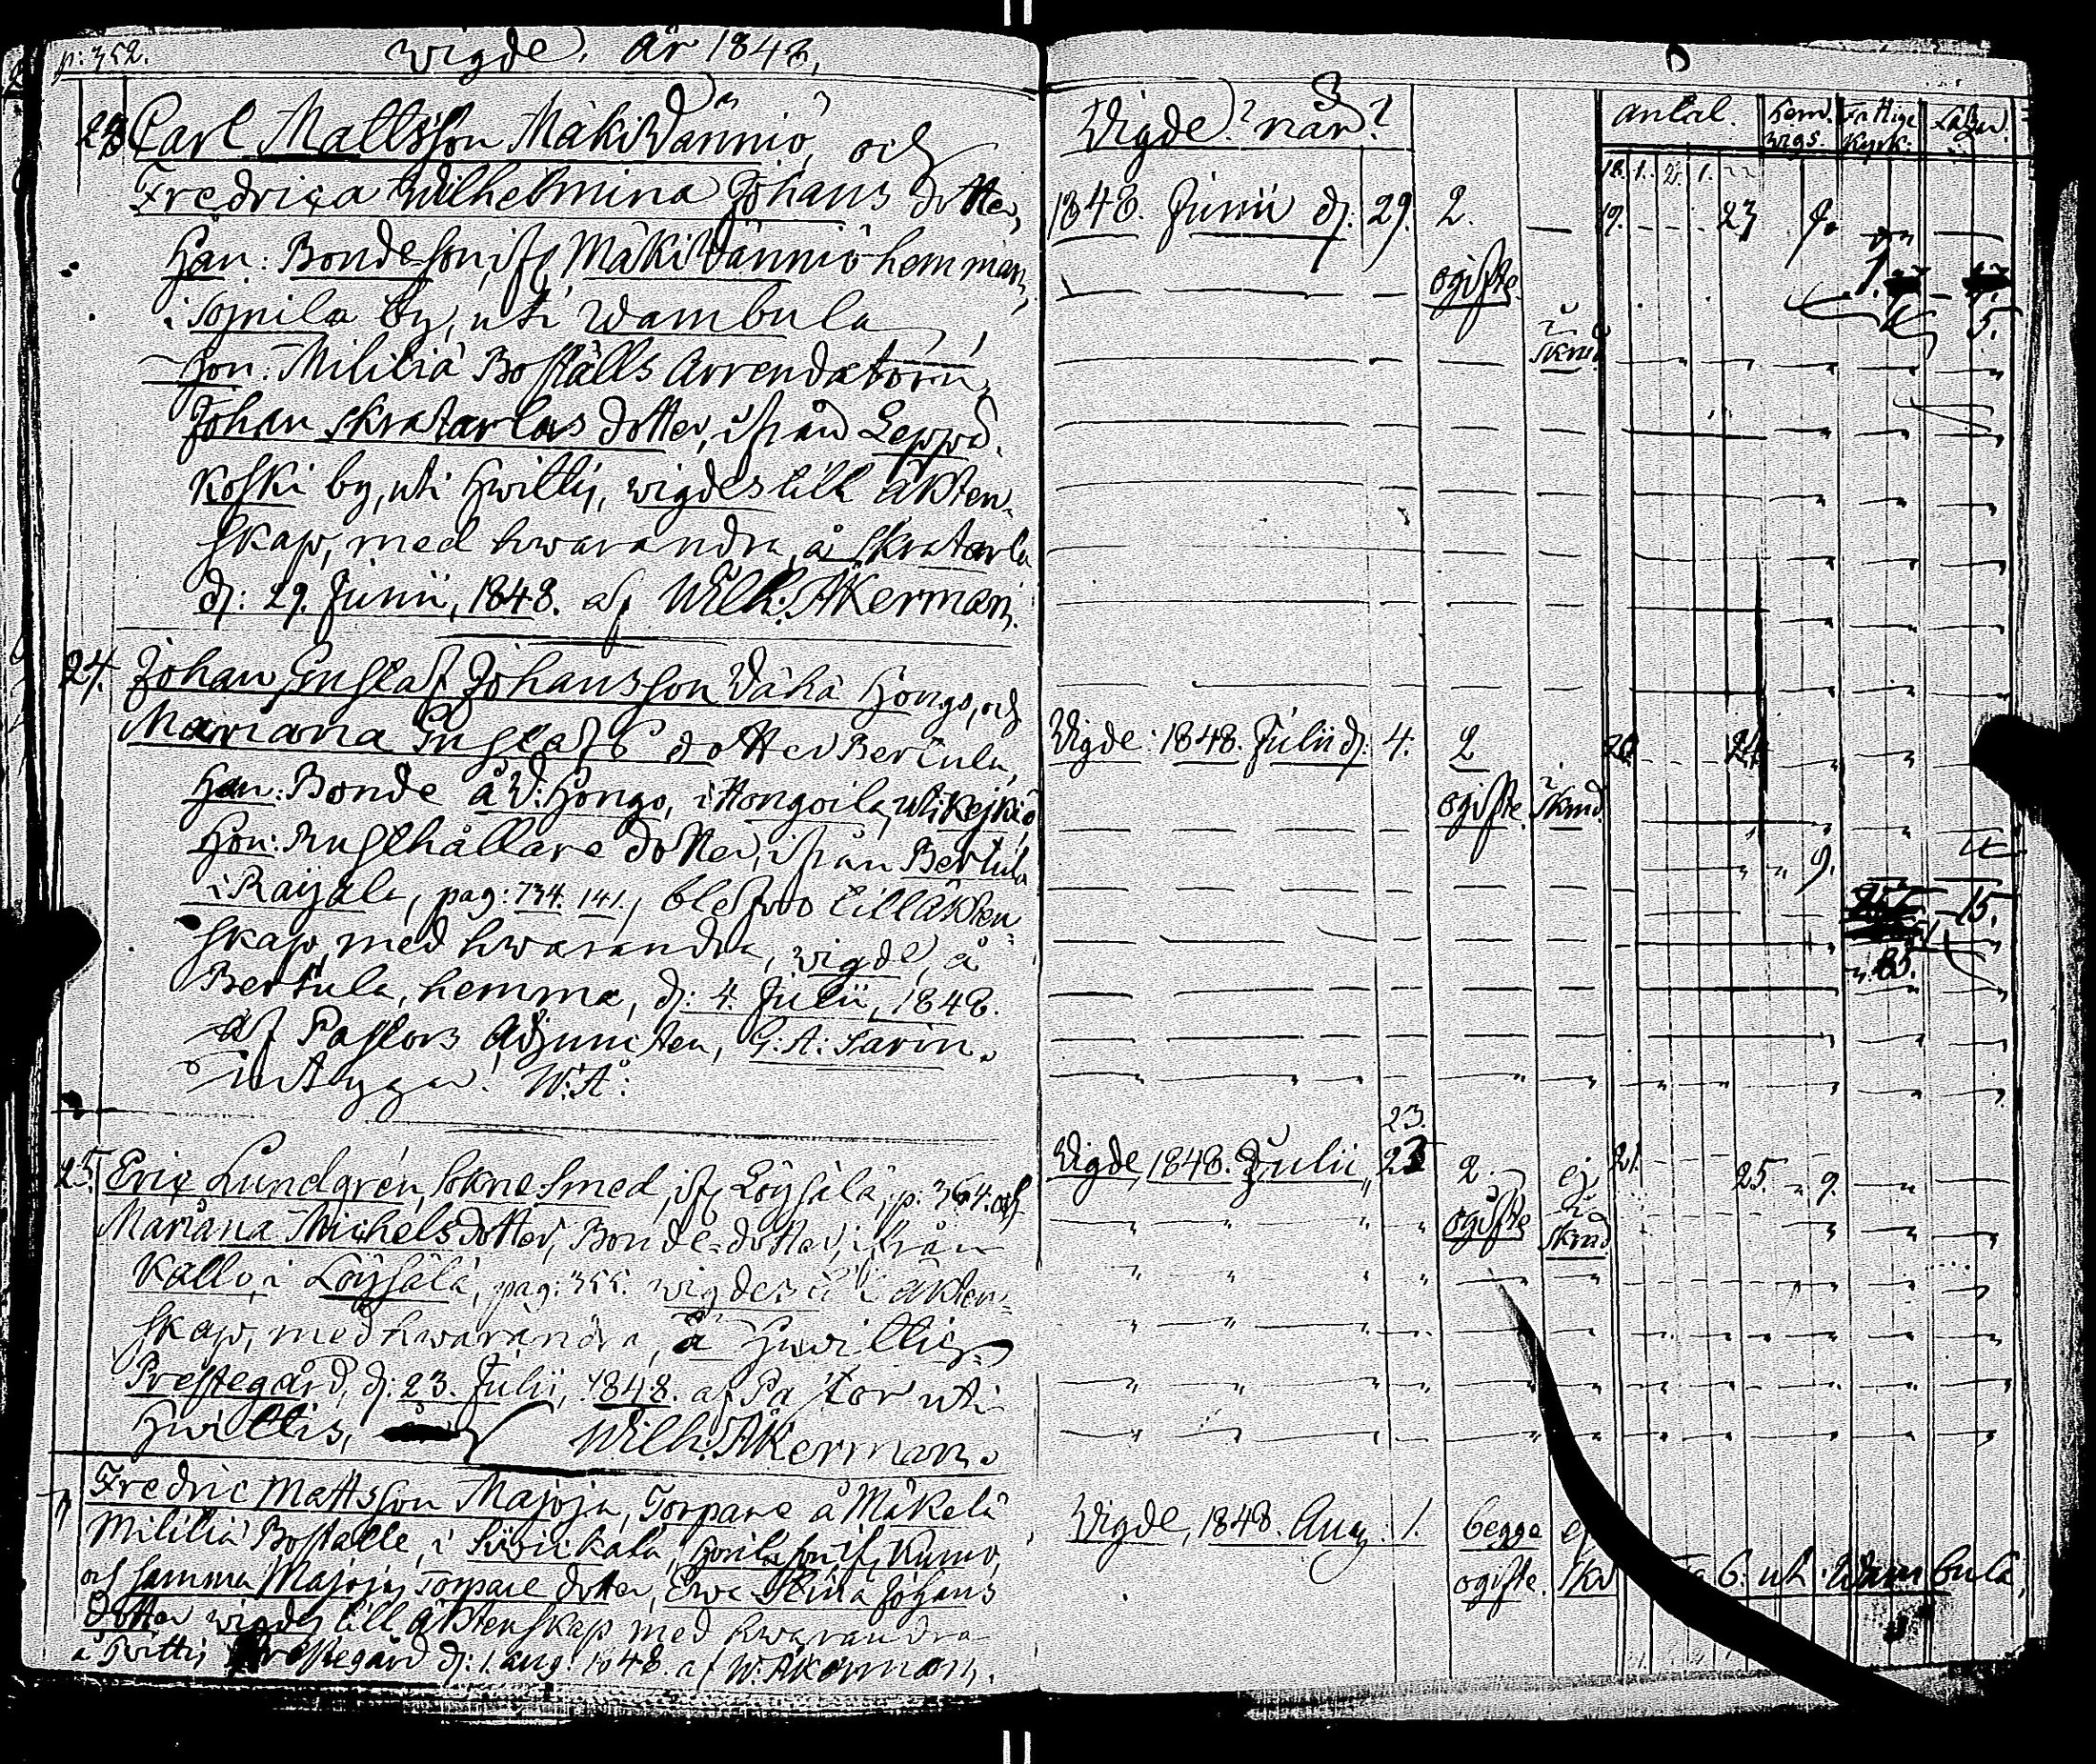 p: 352. Wigde. År 1848.
23 Carl Mattsson Mäki Wänniö, och
Fredrica Wilhelmina Johans dotter,
Han: Bondeson, ifr. Mäki Wänniö hemman,
i Sojnila by, uti Wambula,
Hon: Militiä Boställs Arrendatorn,
Johan Skratarlas dotter, ifrån Leppä-
koski by, uti Hwittis, wigdes till äkten-
skap, med hwarandra, å Skratarla
d: 29. Junii, 1848. af Wilh: Åkerman.
24. Johan Gustaf Johansson Wähä Hongo, och
Mariana Gustafs dotter Bertula,
Han: Bonde å W: Hongo, i Hongoila, uti Kejkiö
Hon: Rusthållare dotter, ifrån Bertula
i Raijala, pag: 734. 141., blefwo till äkten-
skap, med hwarandra, wigde, å
Bertula, hemma, d: 4. Julii, 1848.
af Pastors Adjuncten, G: A: Sarin.
intygar. W: Å:
25. Eric Lundgrén, Sokne Smed, ifr. Löysälä, p. 364. och
Mariana Michelsdotter, Bonde-dotter, ifrån
Kallo, i Löysälä, pag: 355. wigdes till äkten-
skap, med hwarandra, å Hwittis
Prestegård, d: 23. Julii, 1848. af Pastor uti
Hwittis, Wilh: Åkerman.
Fredric Mattsson Majoja, Torpare å Mäkelä
Militiä Boställe, i
och samma Majoja, Torpare dotter, Ewa Stina Johans
dotter wigdes till äktenskap med hwarandra
å Hwittis Prestegård d: 1. Aug: 1848. af W. Åkerman.
Wigde? när?
antal. hem. wigs. Fattige Kyrk:
1848. Junii d: 29. 2. 19. 23
ogifte.
skrud
5.
Wigde: 1848. Julii d: 4. 2 24
ogifte. skrud.
9.
15.
85.
23.
Wigde, 1848. Julii, 23 2. ej 21. 25. 9.
ogifte i skrud
Wigde, 1848. Aug: 1. begge
ogifte. uti Wambula,